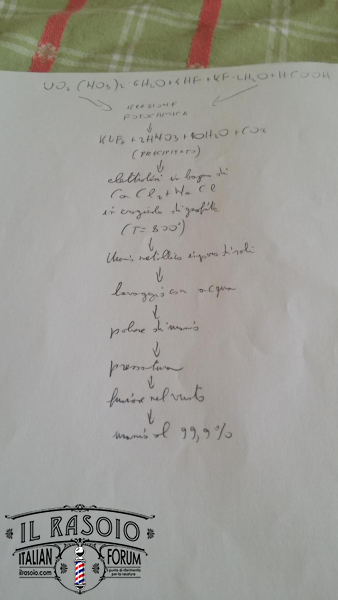 UO₂(NO₃)₂·6H₂O+4HF+KF·2H₂O+HCOOH
REAZIONE
FOTOCHIMICA
KUF₅+2HNO₃+10H₂O+CO₂
(PRECIPITATO)
elettrolisi in bagno di
CaCl₂+NaCl
in crogiolo di grafite
(T=800°)
Uranio metallico
lavaggio con acqua
polvere di uranio
pressatura
fusione nel vuoto
uranio al 99,9%
IL RASOIO
ITALIAN FORUM
ilrasoio.com
il punto di riferimento
per la rasatura